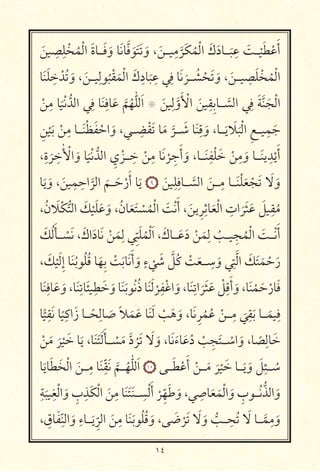 أَعْطَيْتَ عِبَادَكَ الْمُكْرَمِينَ، وَتَوَفَّانَا وَفَاةَ الْمُخْلِصِينَ
الْمُخْلَصِينَ، وَتَحْشُرَنَا فِي عِبَادِكَ الْمَقْبُولِينَ، وَتُدْخِلَنَا
الْجَنَّةَ فِي السَّابِقِينَ الْأَوَّلِينَ ۞ اَللّٰهُمَّ عَافِنَا فِي الدُّنْيَا مِنْ
جَمِيعِ الْبَلَايَا، وَقِنَا شَرَّ مَا تَقْضِي، وَاحْفَظْنَا مِنْ بَيْنِ
أَيْدِينَا وَمِنْ خَلْفِنَا، وَأَجِرْنَا مِنْ خِزْيِ الدُّنْيَا وَالْأٰخِرَةِ،
وَلَا تَجْعَلْنَا مِنَ السَّافِلِينَ ۝٩ يَا أَرْحَمَ الرَّاحِمِينَ، وَيَا
مُقِيلَ عَثَرَاتِ الْعَاثِرِينَ، أَنْتَ الْمُسْتَعَانُ، وَعَلَيْكَ التُّكْلَانُ،
أَنْتَ الْمُجِيبُ لِمَنْ دَعَاكَ، اَلْمُلَبِّي لِمَنْ نَادَاكَ، نَسْأَلُكَ
بِرَحْمَتِكَ الَّتِي وَسِعَتْ كُلَّ شَيْءٍ، وَأَنَابَتْ بِهَا قُلُوبُنَا إِلَيْكَ،
فَارْحَمْنَا، وَأَقِلْ عَثَرَاتِنَا، وَاغْفِرْ لَنَا ذُنُوبَنَا وَخَطِيئَاتِنَا، وَعَافِنَا
فِيمَا بَقِيَ مِنْ عُمُرِنَا، وَهَبْ لَنَا عَمَلًا صَالِحًا زَاكِيًا نَقِيًّا
خَالِصًا، وَاسْتَجِبْ دُعَاءَنَا، وَلَا تَرُدَّ مَسْأَلَتَنَا، يَا خَيْرَ مَنْ
سُئِلَ وَيَا خَيْرَ مَنْ أَعْطَى ۝١٠ اَللّٰهُمَّ نَقِّنَا مِنَ الْخَطَايَا
وَالذُّنُوبِ وَالْمَعَاصِي، وَطَهِّرْ أَلْسِنَتَنَا مِنَ الْكَذِبِ وَالْغِيبَةِ
وَمِمَّا لَا تُحِبُّ وَلَا تَرْضَى، وَقُلُوبَنَا مِنَ الرِّيَاءِ وَالنِّفَاقِ،
١٤